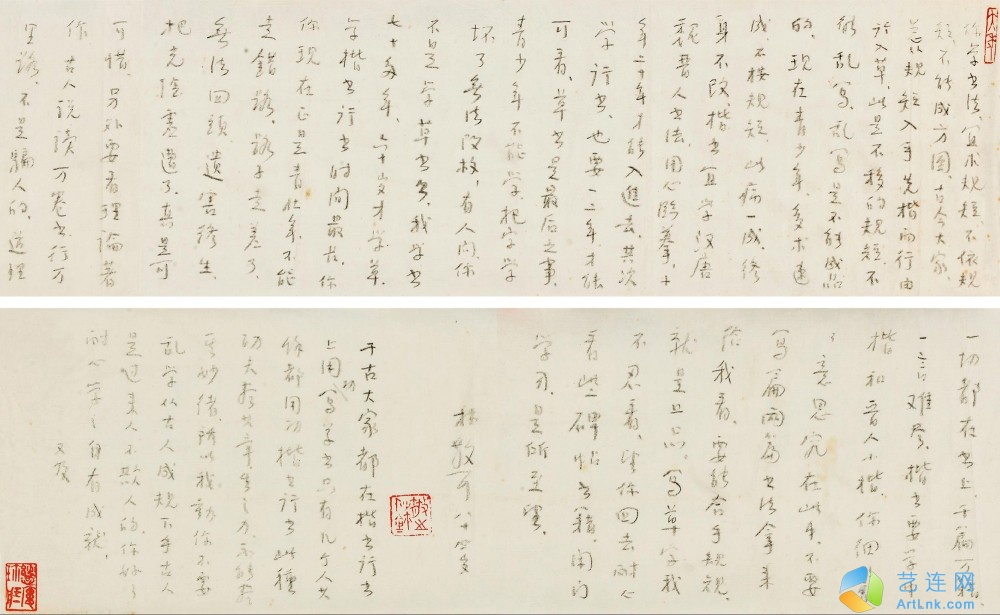 你学书法,宜求规矩,不依规
矩不能成方圆,古今大家
总从规矩入手,先楷而行由
行入草,此是不移的规矩不
能乱写,乱写是不能成品
的,现在青少年,多求速
成不按规矩,此病一成,终
身不改,楷书宜学汉唐
魏晋人书法,用心临摹,十
年二十年才能入进去,其次
学行书,也要一二年才能
可看,草书是最后之事,
青少年不能学,把字学
坏了无法改救,有人问你
不是学草书吗,我学书
七十多年,六十岁才学草
学楷书行书时间最长,你
你现在正是青壮年,不能
走错路,路子走差了,
无法回头,遗害终生,
把光阴虚遭了,真是可
可惜,另外要看理论著
作,古人说读万卷书行万
里路,不是骗人的,道理
一切都在书上,千篇万
一言难尽,楷书要学
楷和晋人小楷,你细
意思 在此 不要
写篇两篇书法拿来
给我看,要能合乎规规
就是上上品,写草字我
不忍看,望你回去耐心
看些碑帖书籍,闲门
学习,是所至望。
林散耳八十四叟
千古大家都在楷书行书
上用功写草书只有几个人其
余都用功楷书行书此种
功夫 毕生之力,不能尽
其妙绪,所以我劝你不要
乱学从古人成规下手古人
是过来人不欺人的,你好
耐心学之自有成就,
又及
艺连网
ArtLnk.com